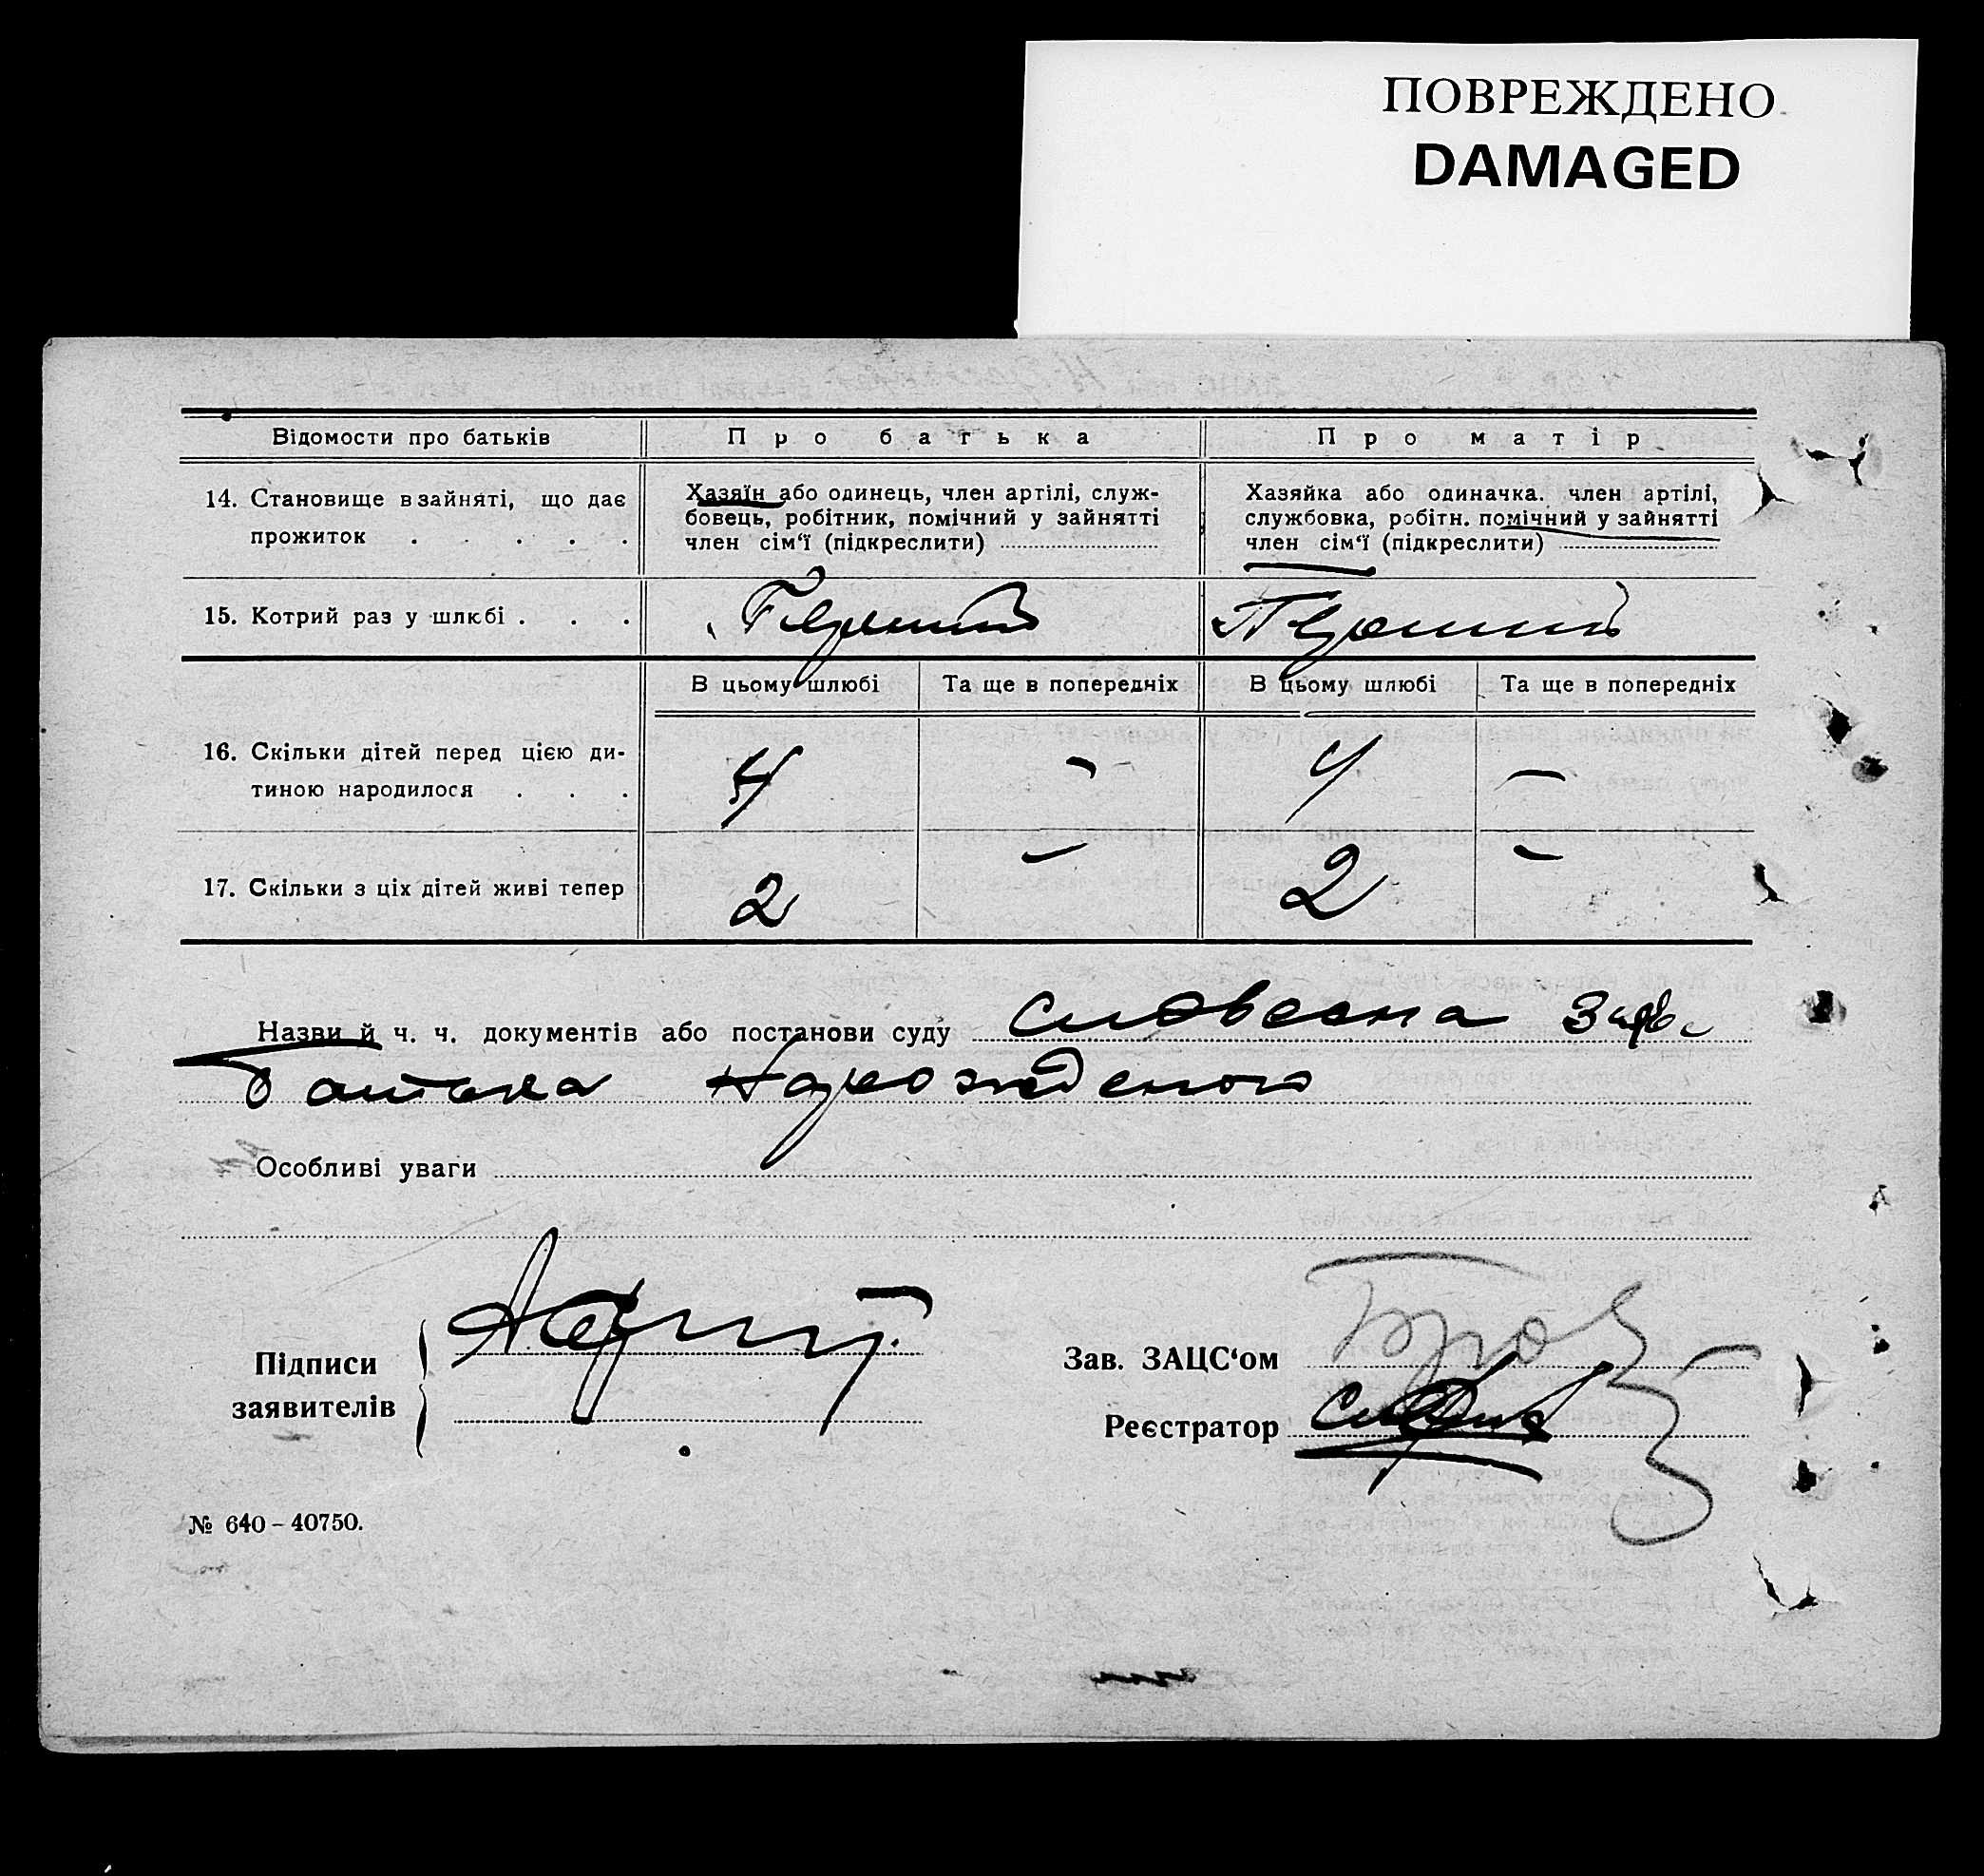 ПОВРЕЖДЕНО
DAMAGED
Відомости про батьків
Про батька
Про матір
14. Становище в зайняті, що дає прожиток . . . . .
Хазяїн або одинець, член артілі, служ-
бовець, робітник, помічний у зайнятті
член сім‘ї (підкреслити)
Хазяйка або одиначка. член артілі,
службовка, робітн. помічний у зайнятті
член сім‘ї (підкреслити)
15. Котрий раз у шлюбі . . .
Перший
Перший
В цьому шлюбі
Та ще в попередніх
В цьому шлюбі
Та ще в попередніх
16. Скільки дітей перед цією ди-
тиною народилося . . .
4
-
4
-
17. Скільки з ціх дітей живі тепер
2
-
2
-
Назви й ч. ч. документів або постанови суду словесна заяв.
батька нарожденого
Особливі уваги
Підписи
заявителів
Зав. ЗАЦС‘ом
Реєстратор
№ 640 – 40750.